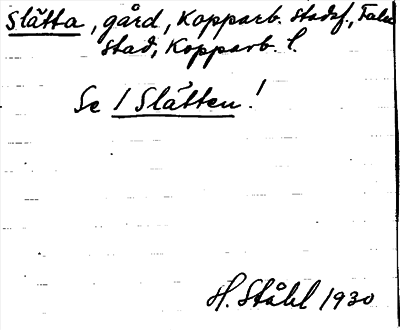 Slätta, gård, Kopparb. stadsf., Falu
stad, Kopparb. l.
Se / Slätten!
H. Ståhl 1930